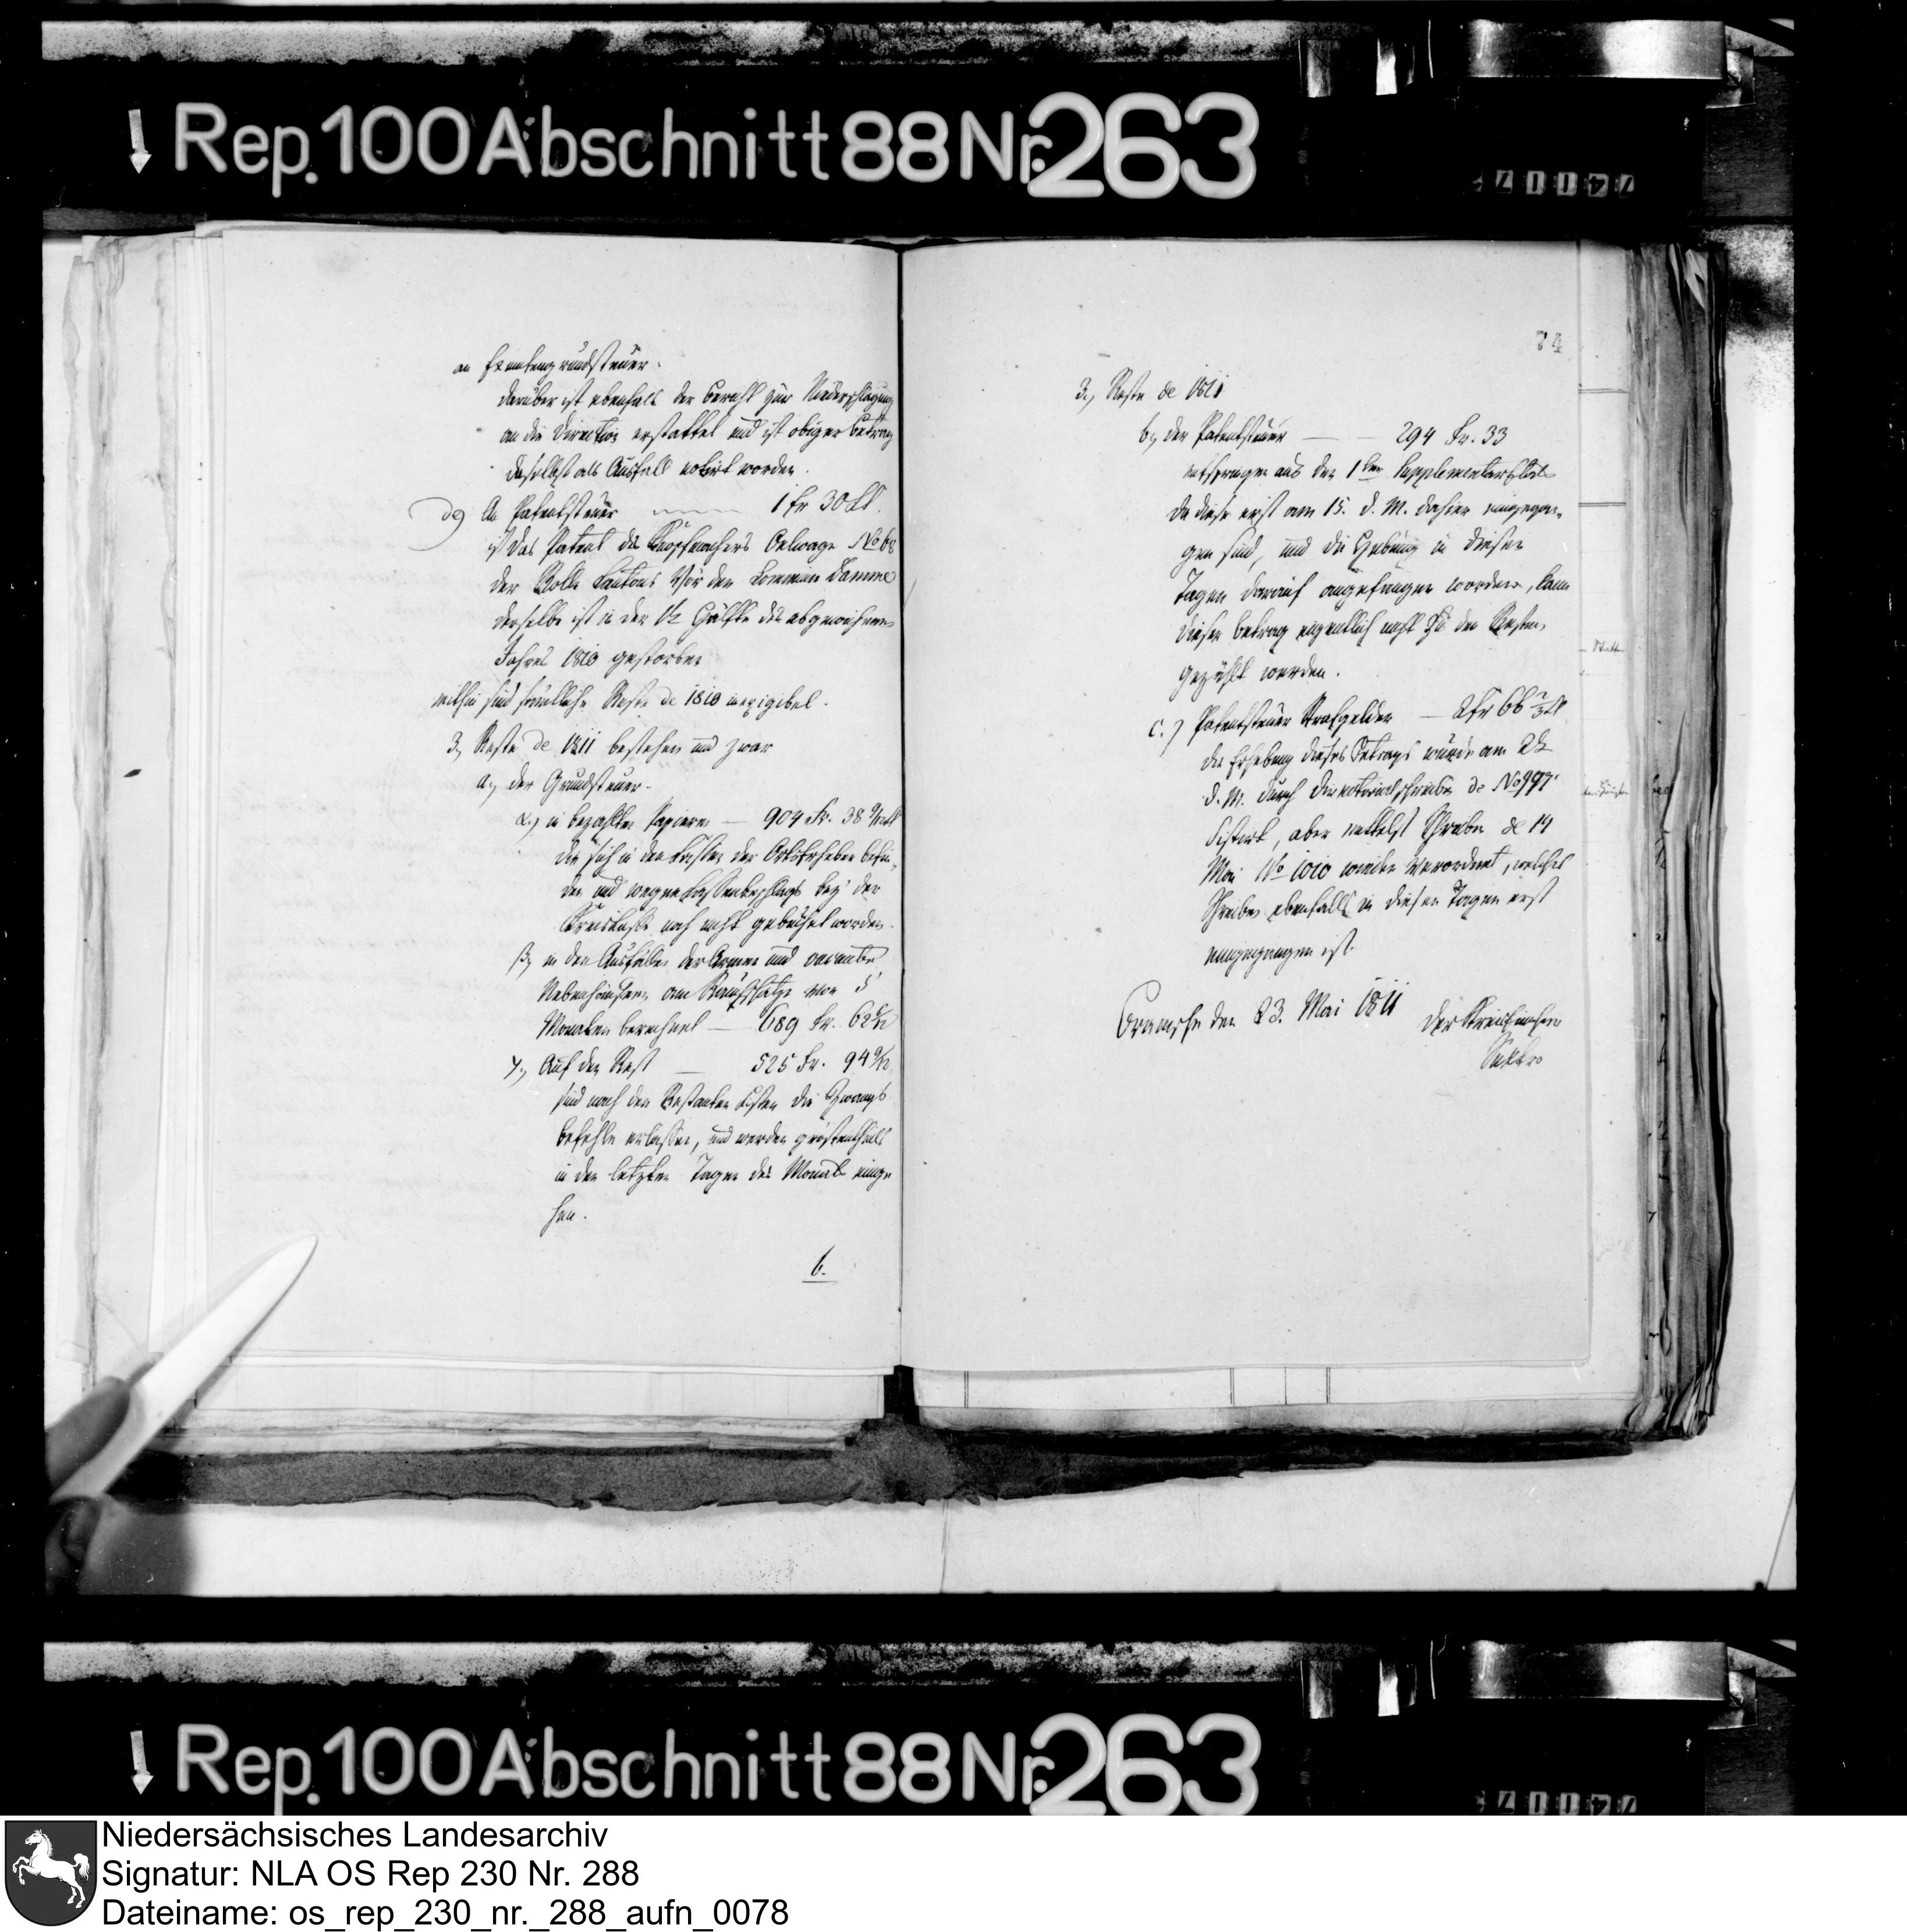 Rep. 100 Abschnitt 88 Nr. 263
an Exemtengrundsteuer.
darüber ist ebenfals der Bericht zur Niederschlagung
an die Direction erstattet und ist obiger Betrag
daselbst als Ausfall notirt worden.
An Patentsteuer 1 fr 30
ist das Patent des No 68
der Rolle Cantons Vör den Commun Damme
derselbe ist in der Hälfte des abgewichenen
Jahres 1810 gestorben
mithin sind sämtliche Reste de 1810 inexigibel.
3, Reste de 1811 bestehen und zwar
a, der Grundsteuer.
α.) in bezahlten Papieren — 904 Fr. 38
die sich in den Cassen der Ortserheber befin-
den und wegen bey der
Kreiskasse noch nicht gebuchet worden.
β, in den Ausfällen der und
von 5
Monaten berechnet — 689 Fr. 62
γ, Auf den Rest — 525 Fr. 94
sind nach den Restanten Listen die Zwangs
befehle erlassen, und werden gröstentheils
in den letzten Tagen des Monats einge
hen.
b.
74
3, Reste de 1811
b, der Patentsteuer — 294 Fr. 33
entspringen aus der 1ten
da diese erst am 15. d. M. dahier eingegan-
gen sind, und die Hebung in diesen
Tagen darauf angefangen worden, kann
dieser Betrag eigentlich nicht zu den Resten
gezählt werden.
c.) Patentsteuer Strafgelder — 2 fr 66 2/3
die Erhebung dieses Betrags wurde am
d. M. durch Directorialschreiben de No 997
sistirt, aber mittelst Schreiben de 14
Mai No 1010 wieder verordnet, welches
Schreiben ebenfalls in diesen Tagen erst
eingegangen ist.
Bramsche den 23. Mai 1811
Der Kreiseinnehmer
Rep. 100 Abschnitt 88 Nr. 263
Niedersächsisches Landesarchiv
Signatur: NLA OS Rep 230 Nr. 288
Dateiname: os_rep_230_nr._288_aufn_0078